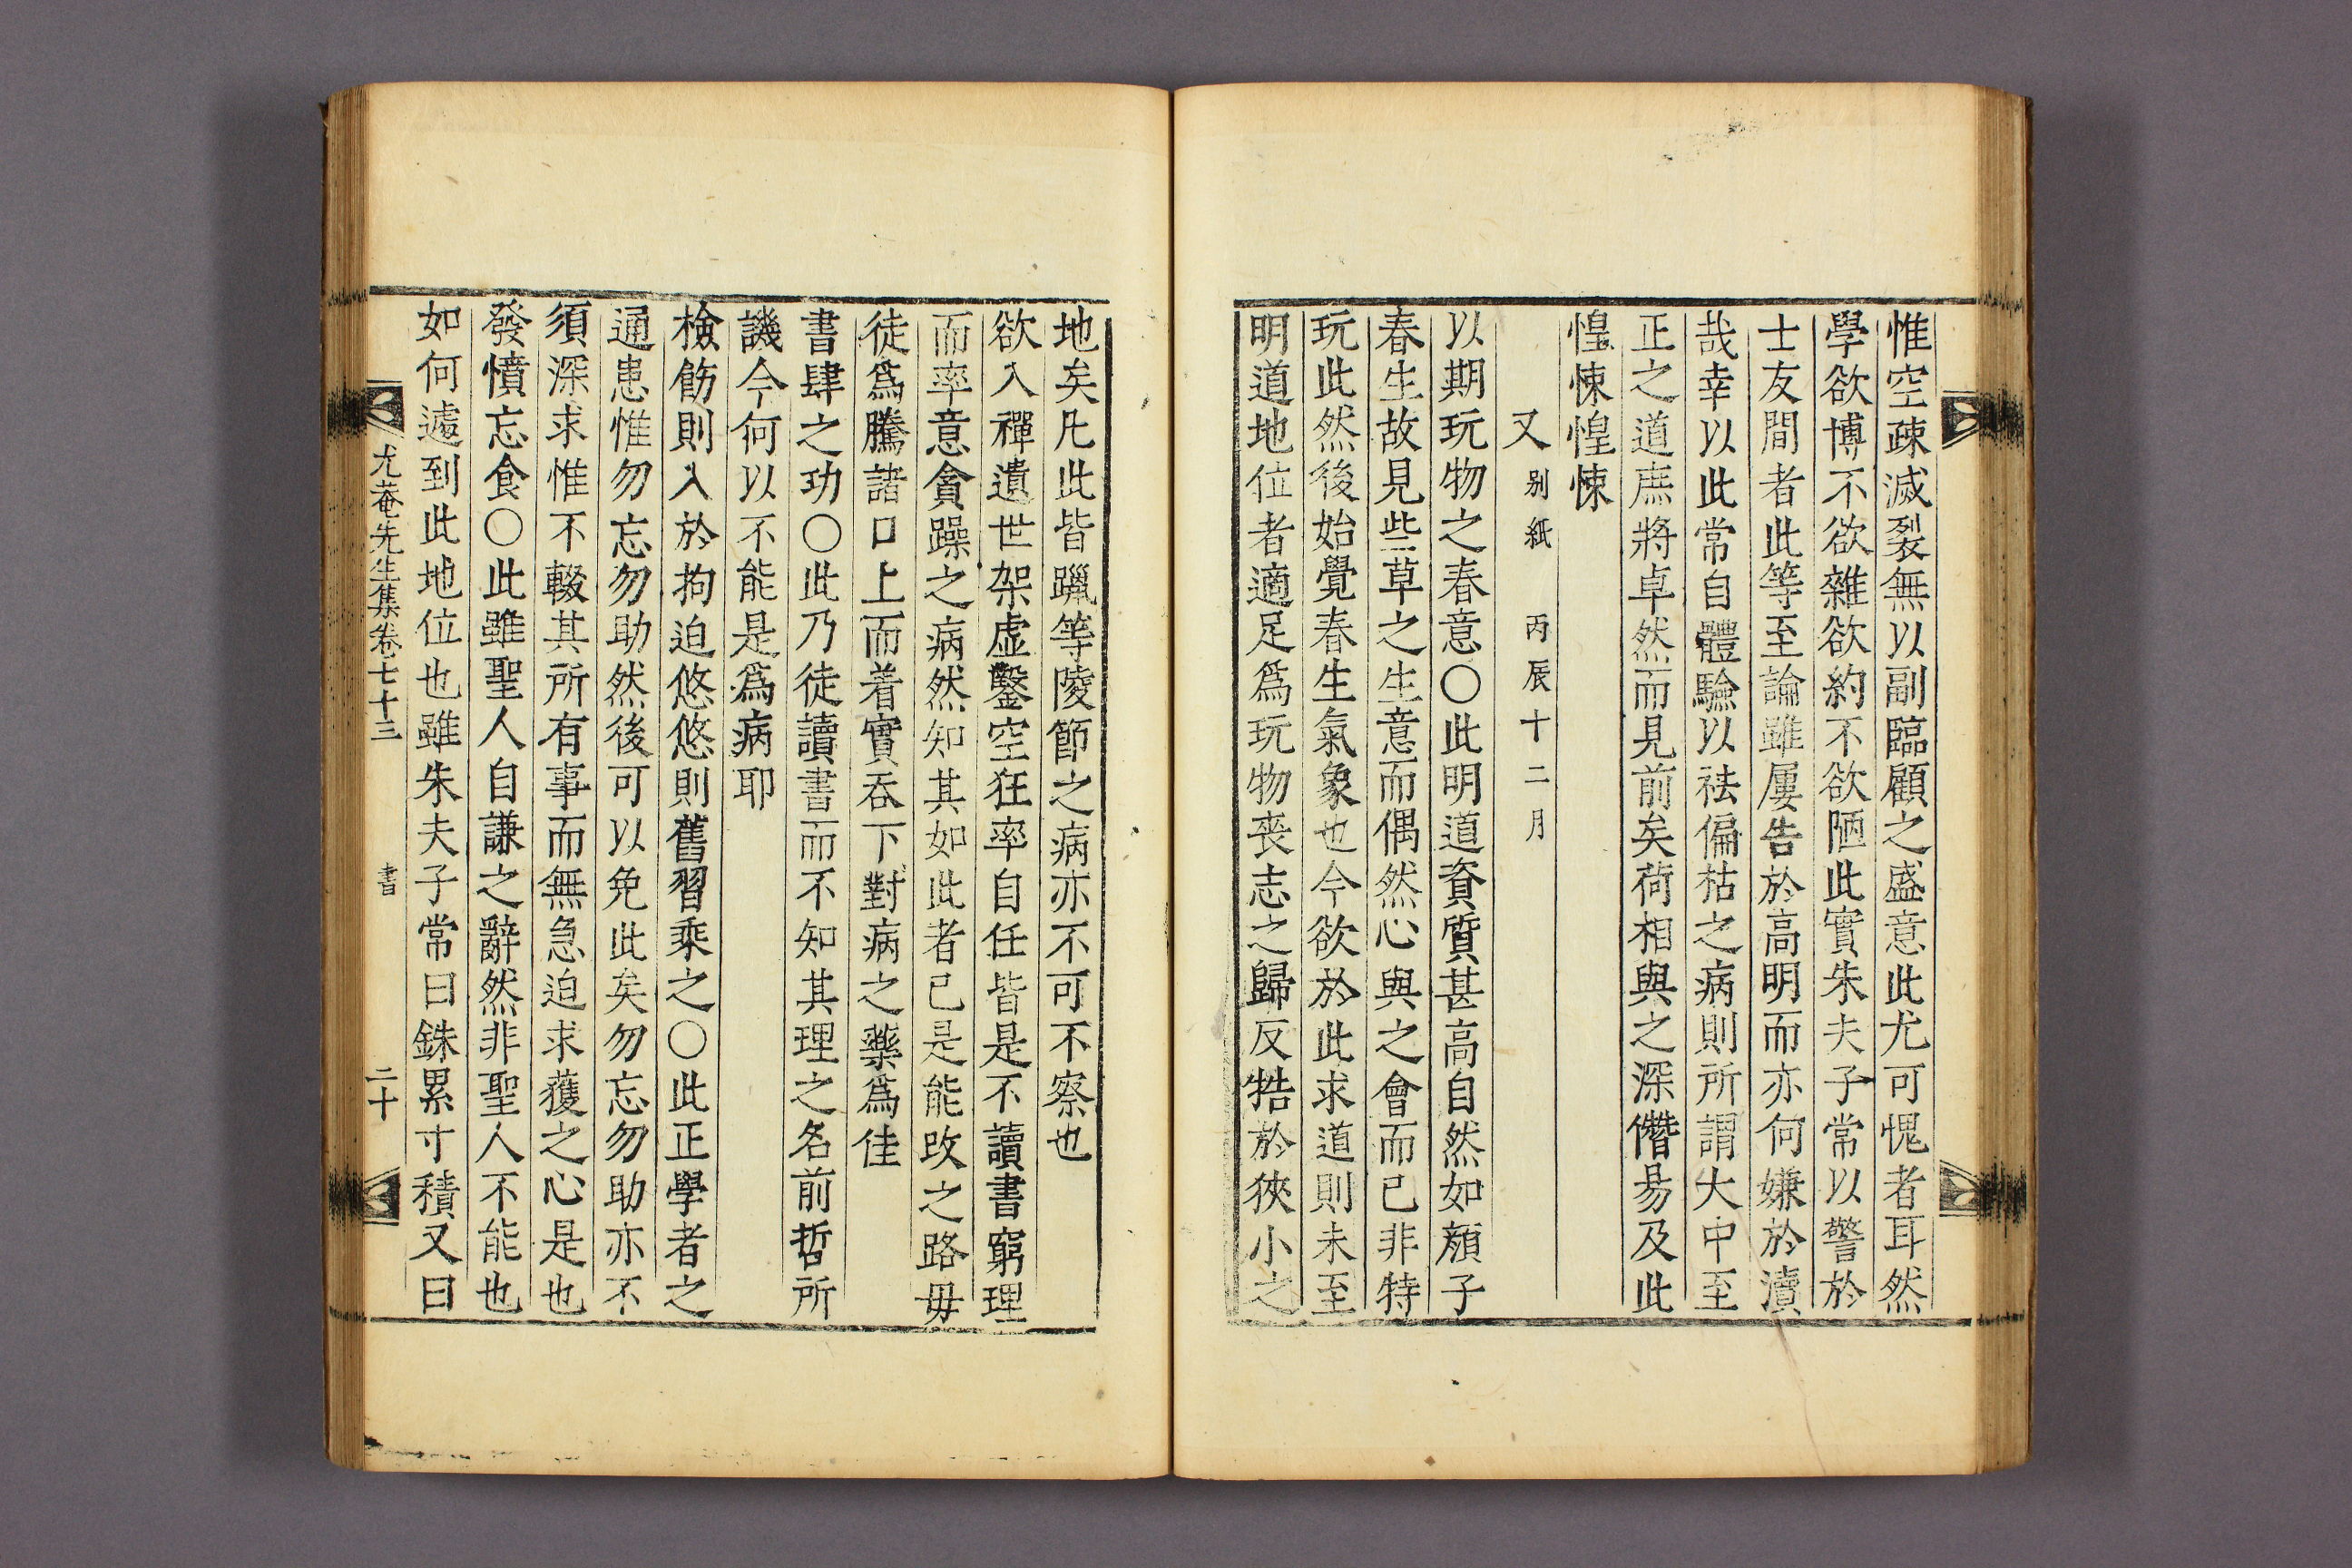 惟空疎滅裂無以副臨顧之盛意此尤可愧者耳然
學欲博不欲雜欲約不欲陋此實朱夫子常以警於
士友間者此等至論雖屢告於高明而亦何嫌於瀆
哉幸以此常自體驗以祛偏枯之病則所謂大中至
正之道庶將卓然而見前矣荷相與之深僭易及此
惶悚惶悚
又 别紙 丙辰十二月
以期玩物之春意〇此明道資質甚高自然如顔子
春生故見些草之生意而偶然心與之會而已非特
玩此然後始覺春生氣象也今欲於此求道則未至
明道地位者適足爲玩物喪志之歸反牿於狹小之
地矣凡此皆躐等陵節之病亦不可不察也
欲入禪遺世架虚鑿空狂率自任皆是不讀書窮理
而率意貪躁之病然知其如此者已是能改之路毋
徒爲騰諸口上而着實吞下對病之藥爲佳
書肆之功〇此乃徒讀書而不知其理之名前哲所
譏今何以不能是爲病耶
檢飭則入於拘迫悠悠則舊習乘之〇此正學者之
通患惟勿忘勿助然後可以免此矣勿忘勿助亦不
須深求惟不輟其所有事而無急迫求獲之心是也
發憤忘食〇此雖聖人自謙之辭然非聖人不能也
如何遽到此地位也雖朱夫子常曰銖累寸積又曰
尤菴先生集卷七十三 書 二十